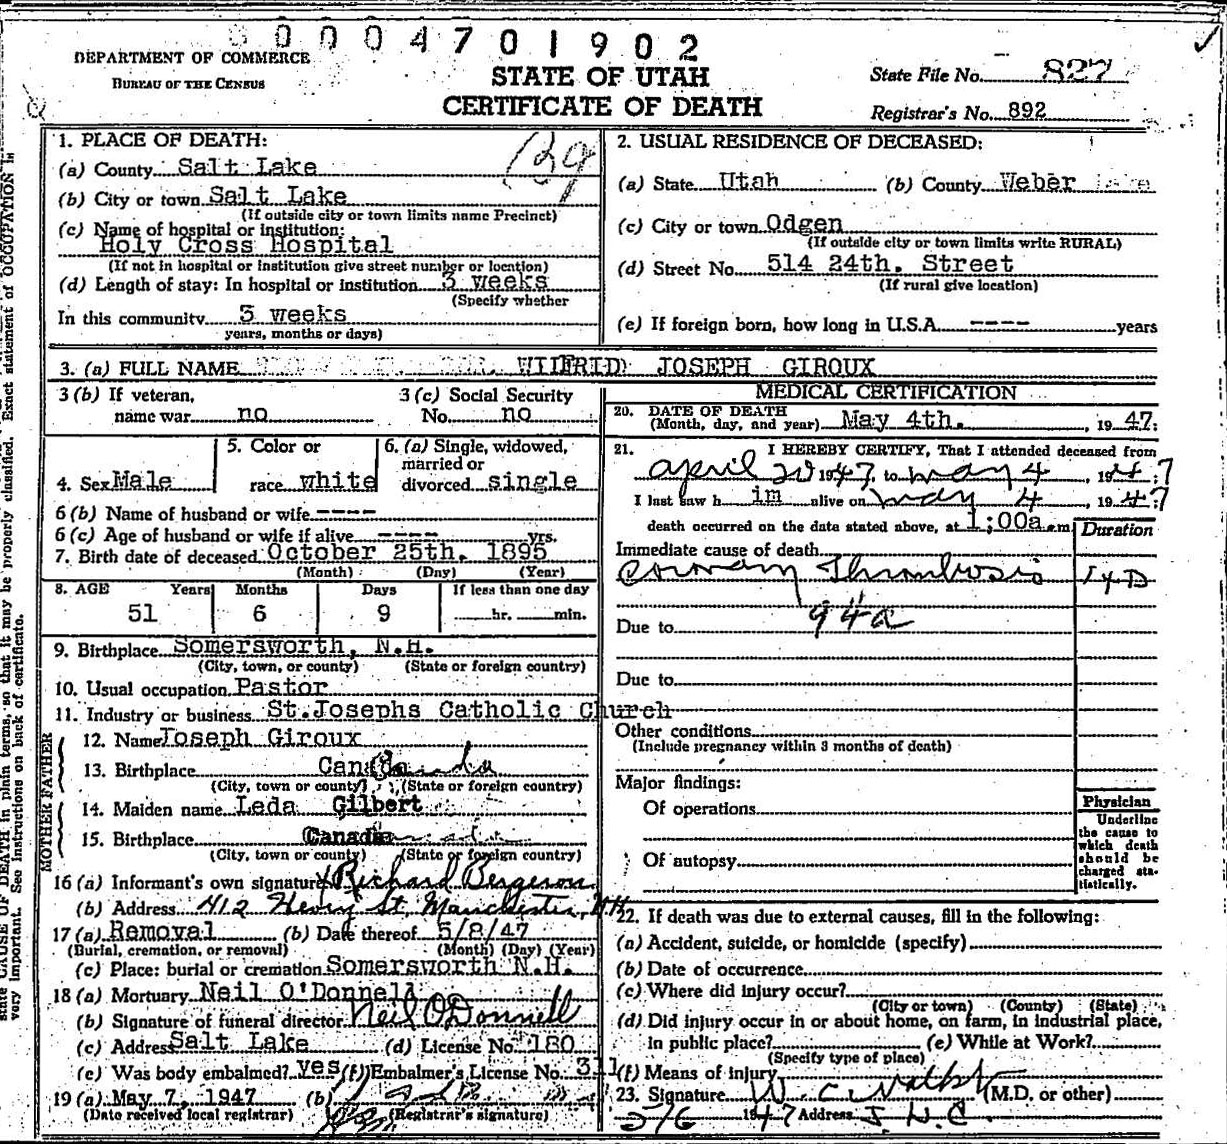 0004701902
DEPARTMENT OF COMMERCE
BUREAU OF THE CENSUS
STATE OF UTAH
CERTIFICATE OF DEATH
State File No. 827
Registrar's No. 892
1. PLACE OF DEATH:
(a) County Salt Lake
(b) City or town Salt Lake
(If outside city or town limits name Precinct)
(c) Name of hospital or institution:
Holy Cross Hospital
(If not in hospital or institution give street number or location)
(d) Length of stay: In hospital or institution 3 weeks
(Specify whether
In this community 3 weeks
years, months or days)
2. USUAL RESIDENCE OF DECEASED:
(a) State Utah (b) County Weber
(c) City or town Odgen
(If outside city or town limits write RURAL)
(d) Street No. 514 24th. Street
(If rural give location)
(e) If foreign born, how long in U.S.A. ---- years
3. (a) FULL NAME WILFRID JOSEPH GIROUX
3 (b) If veteran,
name war no
3 (c) Social Security
No. no
4. Sex Male
5. Color or
race white
6. (a) Single, widowed,
married or
divorced single
6 (b) Name of husband or wife ----
6 (c) Age of husband or wife if alive ---- yrs.
7. Birth date of deceased October 25th. 1895
(Month) (Day) (Year)
8. AGE Years Months Days If less than one day
51 6 9 hr. min.
9. Birthplace Somersworth, N.H.
(City, town, or county) (State or foreign country)
10. Usual occupation Pastor
11. Industry or business St.Josephs Catholic Church
FATHER
12. Name Joseph Giroux
13. Birthplace Canada
(City, town or county) (State or foreign country)
MOTHER
14. Maiden name Leda Gilbert
15. Birthplace Canada
(City, town or county) (State or foreign country)
16 (a) Informant's own signature Richard Bergeron
(b) Address 412 Henry St, Manchester, NH
17 (a) Removal (b) Date thereof 5/8/47
(Burial, cremation, or removal) (Month) (Day) (Year)
(c) Place: burial or cremation Somersworth N.H.
18 (a) Mortuary Neil O'Donnell
(b) Signature of funeral director Neil O'Donnell
(c) Address Salt Lake (d) License No. 180
(e) Was body embalmed? yes (f) Embalmer's License No. 311
19 (a) May 7, 1947 (b)
(Date received local registrar) (Registrar's signature)
MEDICAL CERTIFICATION
20. DATE OF DEATH
(Month, day, and year) May 4th. , 1947:
21. I HEREBY CERTIFY, That I attended deceased from
april 20 1947, to may 4 , 1947
I last saw him alive on may 4 , 1947
death occurred on the date stated above, at 1:00a m
Duration
Immediate cause of death
Coronary Thrombosis
94a
Due to
Due to
Other conditions
(Include pregnancy within 3 months of death)
Major findings:
Of operations
Of autopsy
Physician
Underline
the cause to
which death
should be
charged sta-
tistically.
22. If death was due to external causes, fill in the following:
(a) Accident, suicide, or homicide (specify)
(b) Date of occurrence
(c) Where did injury occur?
(City or town) (County) (State)
(d) Did injury occur in or about home, on farm, in industrial place,
in public place? (e) While at Work?
(Specify type of place)
(f) Means of injury
23. Signature (M.D. or other)
5/6 1947 Address
state CAUSE OF DEATH in plain terms, so that it may be properly classified. Exact statement of OCCUPATION is
very important. See instructions on back of certificate.